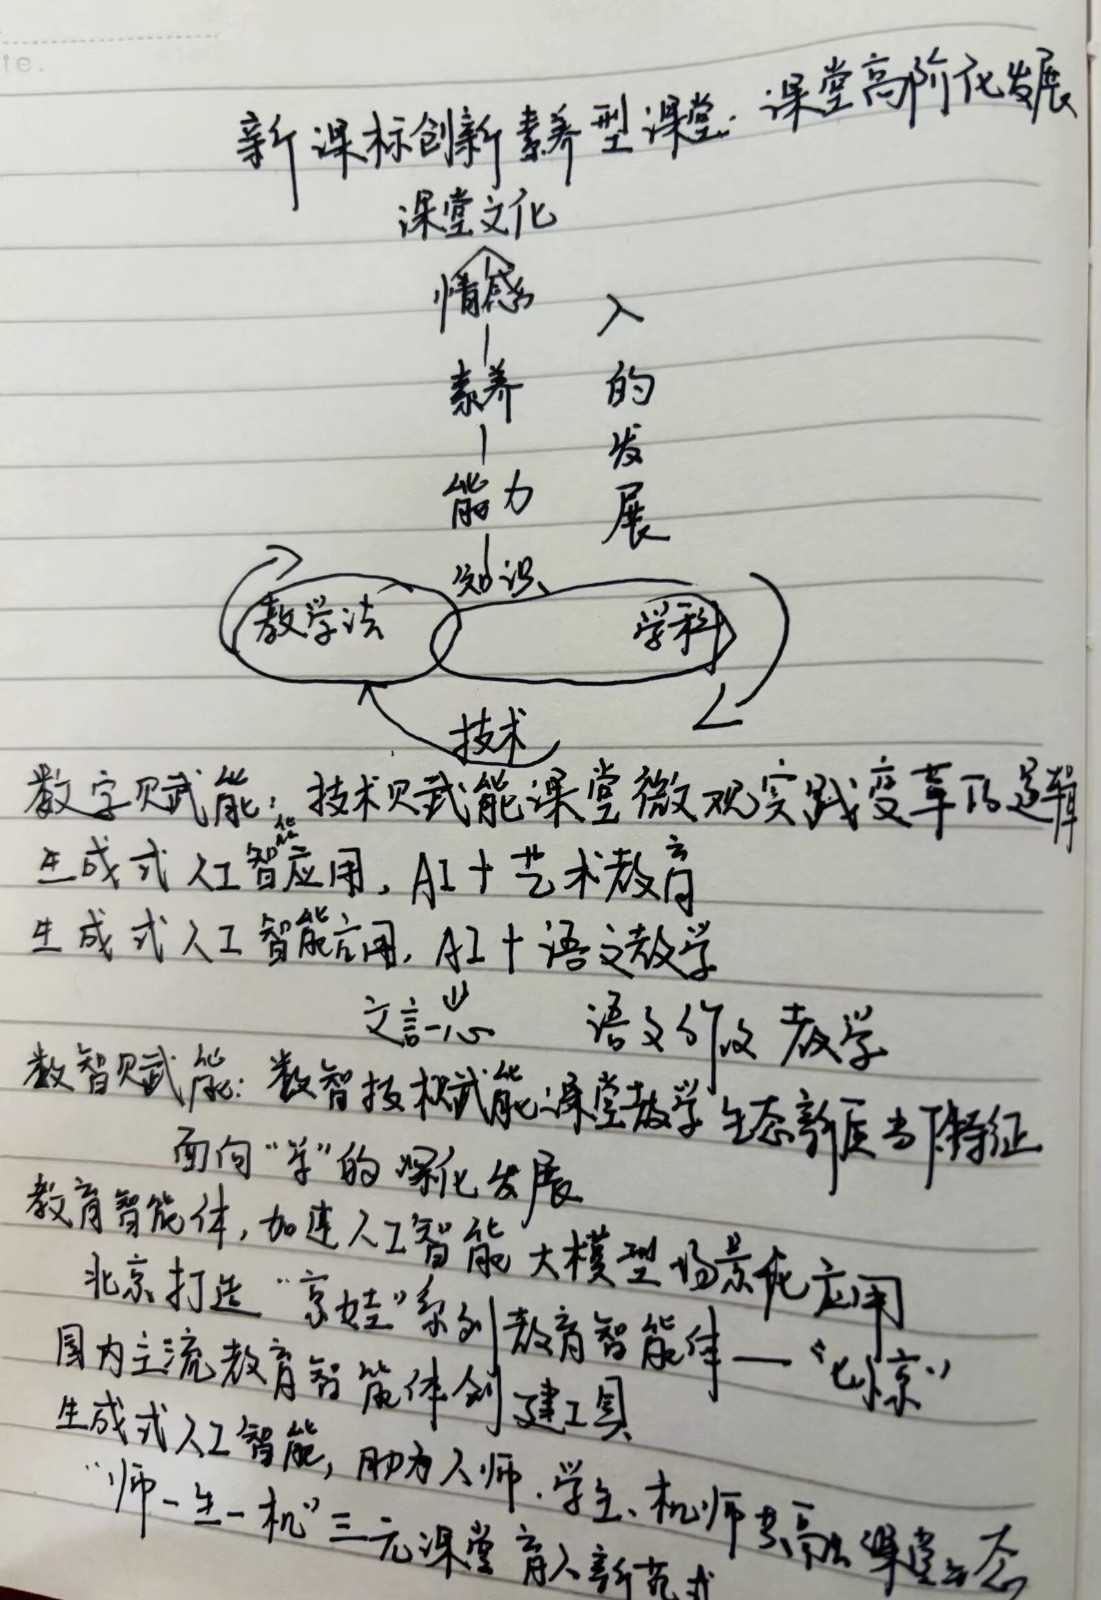 te.
新课标创新素养型课堂. 课堂高阶化发展
课堂文化
情感
素养
能力
知识
人的发展
教学法
学科
技术
数字赋能：技术赋能课堂微观实践变革的逻辑
生成式人工智能应用, AI+艺术教育
生成式人工智能应用, AI+语文教学
文言一心 语文作文教学
数智赋能：数智技术赋能课堂教学生态新医当下特征
面向“学”的深化发展
教育智能体, 加速人工智能大模型场景化应用
北京打造“京娃”系列教育智能体—“小京”
国内主流教育智能体创建工具
生成式人工智能, 助力人师、学生、机师共融课堂生态
“师一生一机”三元课堂育人新范式